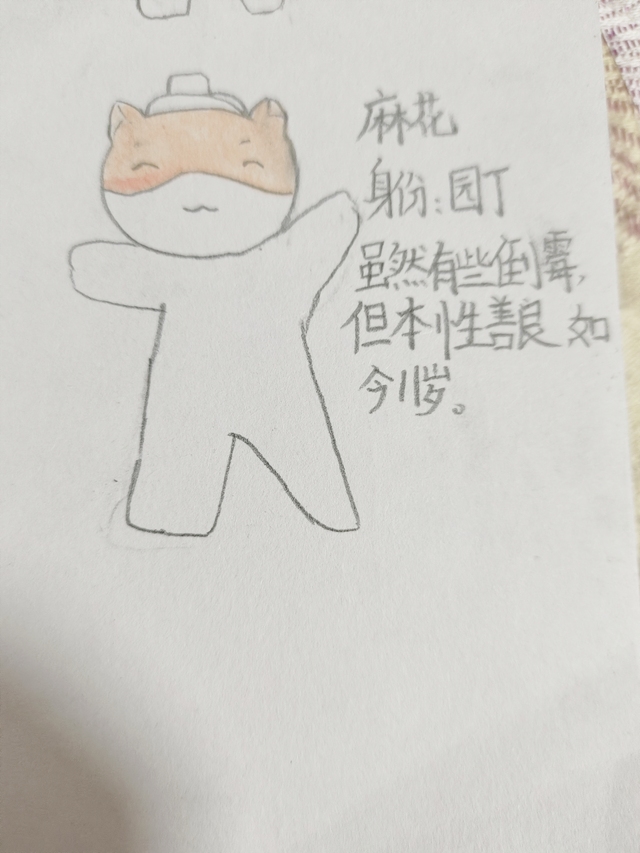 麻花
身份:园丁
虽然有些倒霉,
但本性善良 如
今11岁。